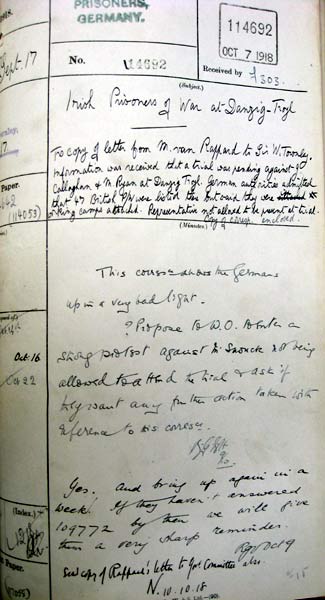 PRISONERS,
GERMANY.
114692
OCT 7 1918
Sept. 17
No. 114692
Received by
1303.
(Subject.)
Irish Prisoners of War at Danzig-Troyl
To copy of letter from M. van Rappard to Sir W. Townley.
Information was received that a trial was pending against J
Callaghan & M. Ryan at Danzig Troyl. German authorities admitted
that 47 British P/W were listed there but said they were
working camps attached. Representative not allowed to be present at trial.
Copy of corresp. enclosed.
(Minutes.)
Paper.
(114053)
This corresce shows the Germans
up in a very bad light.
? Propose to W.O. to enter a
strong protest against M. not being
allowed to attend the trial & ask if
they want any further action taken with
reference to this corresce.
Oct. 16
Oct 22
Yes. And bring up again in a
week. If they haven't answered
109772 by then we will give
them a very sharp reminder.
Oct 9
Send copy of Rappard's letter to Govt Committee also.
N. 10.10.18
(Index.)
Paper.
(114055)